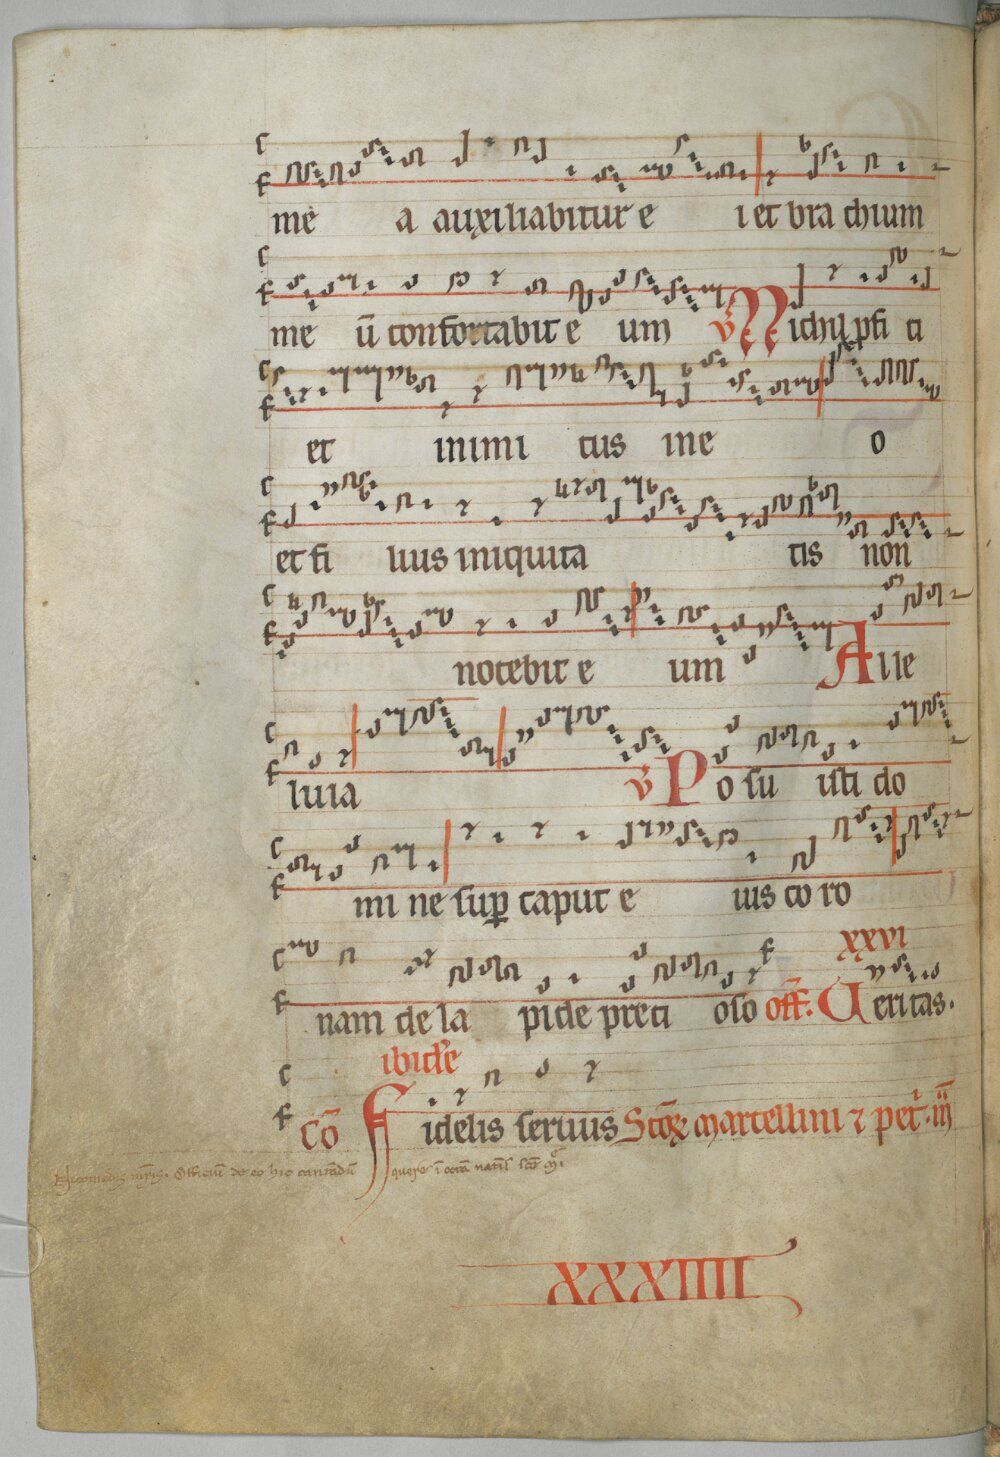 me a auxiliabitur e i et bra chium
me ū confortabit e um v̄ Nichil ꝓfi ci
et inimi cus in e o
et fi lius iniquita tis non
nocebit e um Alle
luia v̄ Po su isti do
mi ne suꝑ caput e ius co ro
XXVI
nam de la pide preci oso off̄. Ueritas.
ibidē
Cō Fidelis seruus Scōꝝ marcellini ⁊ pet̄.
XXXIIII